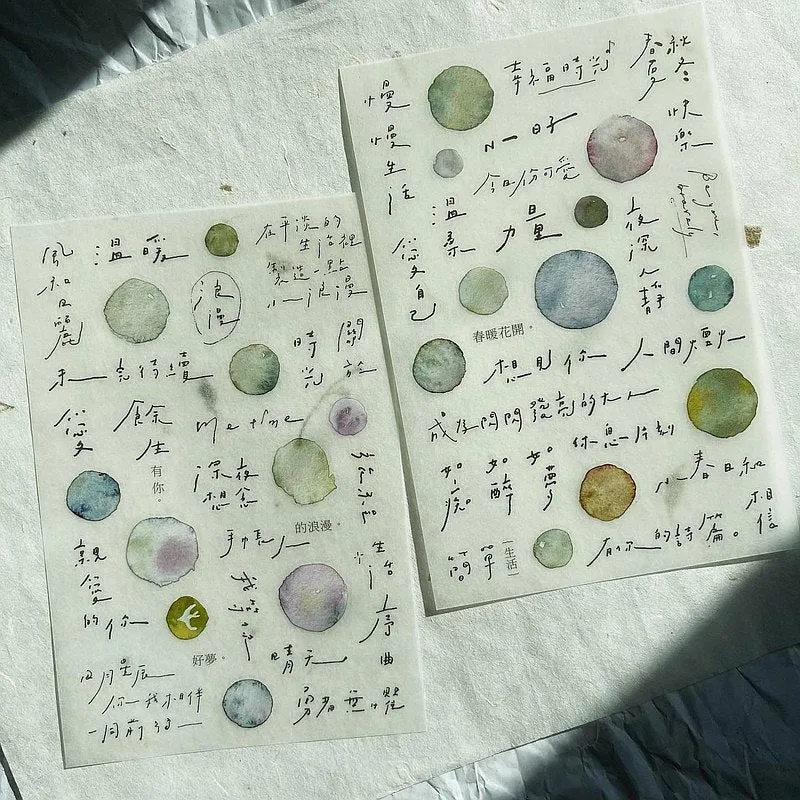 風和日麗
溫暖
浪漫
在平淡的
生活裡
製造一點
小浪漫
未完待續
時光
關於
愛
餘生
有你。
me time
深夜
想念
的浪漫。
親愛的你
手帳人
生活
序曲
好夢。
晴天
日月星辰
你我相伴
一同前行
勇者無懼
慢慢生活
幸福時光
春夏秋冬
快樂
小日子
今日份可愛
Be your
bravely
溫柔
力量
夜深人靜
愛自己
春暖花開。
想見你
人間煙火
成為閃閃發亮的大人
休息一片刻
如痴
如醉
如夢
小春日和
相信
簡單
生活
有你的詩篇。